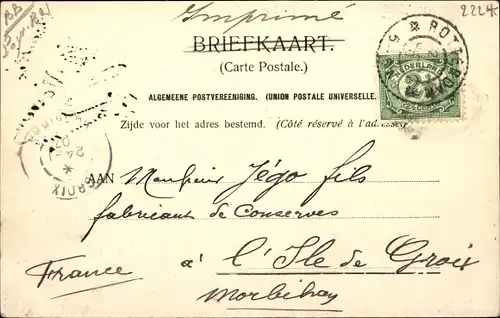 BB
Imprimé
2224
BRIEFKAART.
(Carte Postale.)
ALGEMEENE POSTVEREENIGING. (UNION POSTALE UNIVERSELLE.)
Zijde voor het adres bestemd. (Côté réservé à l'adresse.)
NEDERLAND
2½
ROT
24
07
GROIX
AAN Monsieur Jégo fils
fabricant de Conserves
à l'Ile de Groix
France
Morbihan